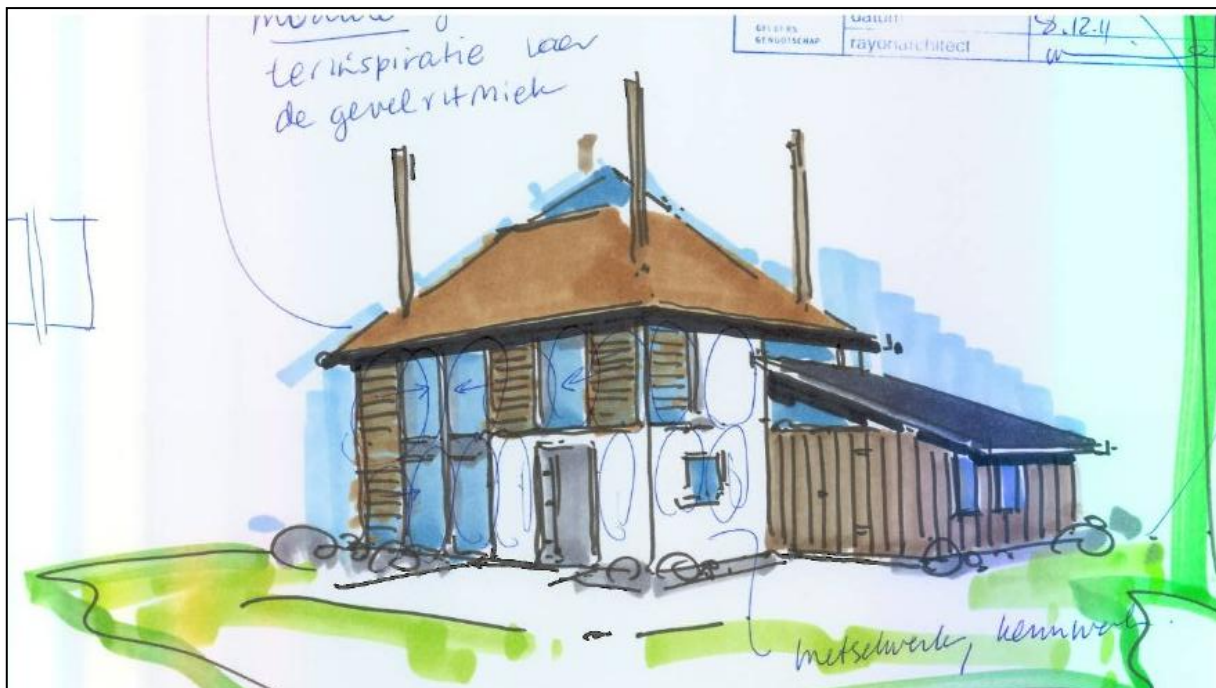 ter inspiratie voor
de gevelritmiek
GELDERS
GENOOTSCHAP
datum
8.12.11
rayonarchitect
metselwerk,